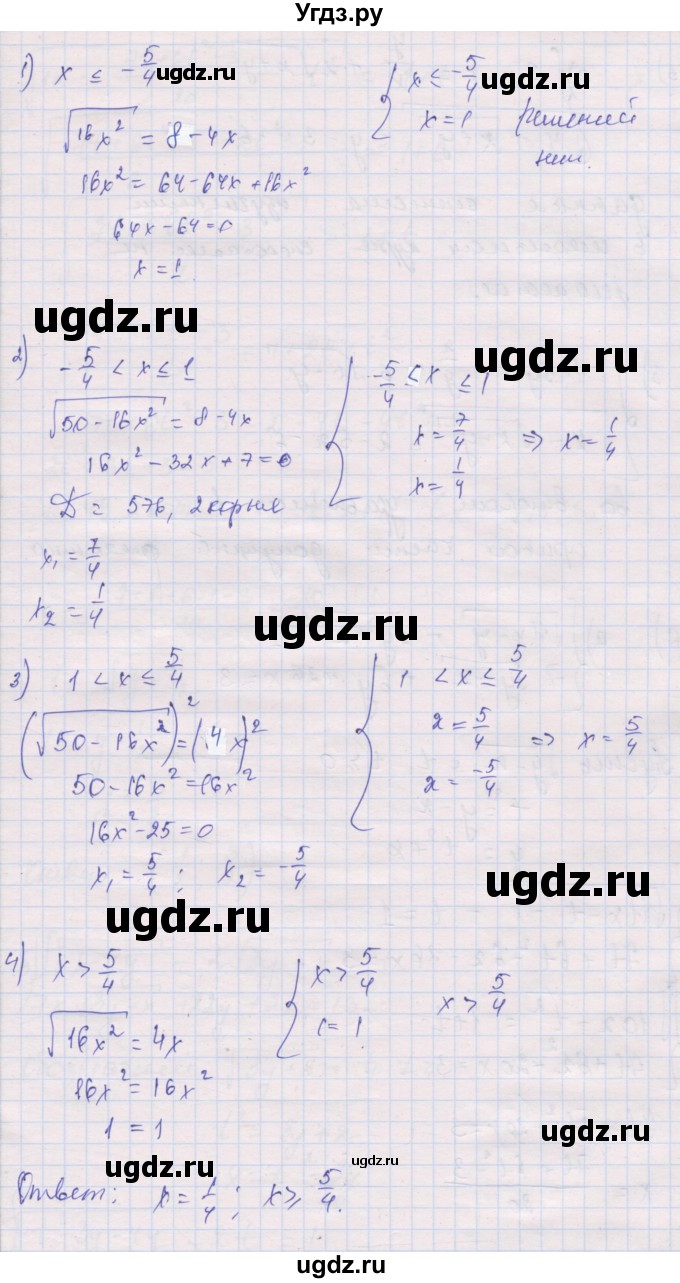 Угдз.ру
1) x ≤ -5/4
ugdz.ru
√16x² = 8 - 4x
16x² = 64 - 64x + 16x²
64x - 64 = 0
x = 1
{ x ≤ -5/4
ugdz.ru
x = 1 решений
нет.
ugdz.ru
ugdz.ru
2) -5/4 < x ≤ 1
√50 - 16x² = 8 - 4x
16x² - 32x + 7 = 0
D = 576, 2 корня
x₁ = 7/4
x₂ = 1/4
{ -5/4 ≤ x ≤ 1
x = 7/4 => x = 1/4
x = 1/4
ugdz.ru
ugdz.ru
3) 1 < x ≤ 5/4
(√50 - 16x²)² = (4x)²
50 - 16x² = 16x²
16x² - 25 = 0
x₁ = 5/4 ; x₂ = -5/4
{ 1 < x ≤ 5/4
x = 5/4 => x = 5/4
x = -5/4
ugdz.ru
ugdz.ru
4) x > 5/4
√16x² = 4x
16x² = 16x²
1 = 1
{ x > 5/4 x > 5/4
1 = 1
ugdz.ru
ugdz.ru
ugdz.ru
Ответ: x = 1/4 ; x ≥ 5/4.
ugdz.ru